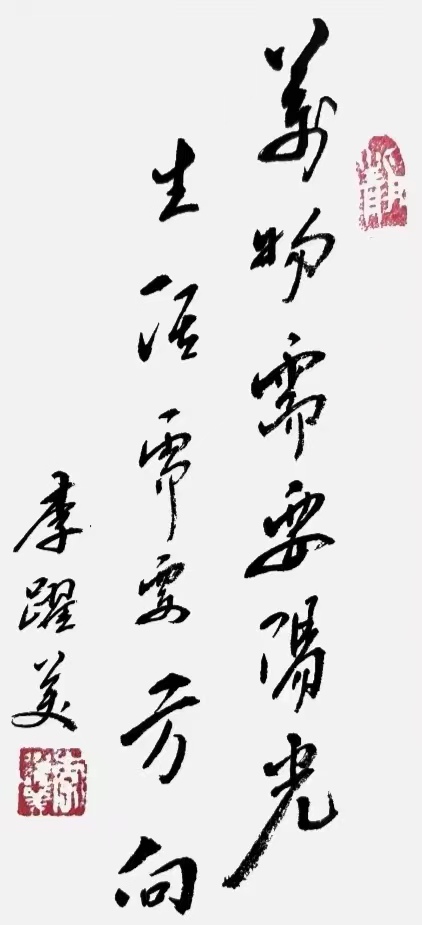 萬物需要陽光
生活需要方向
李躍美